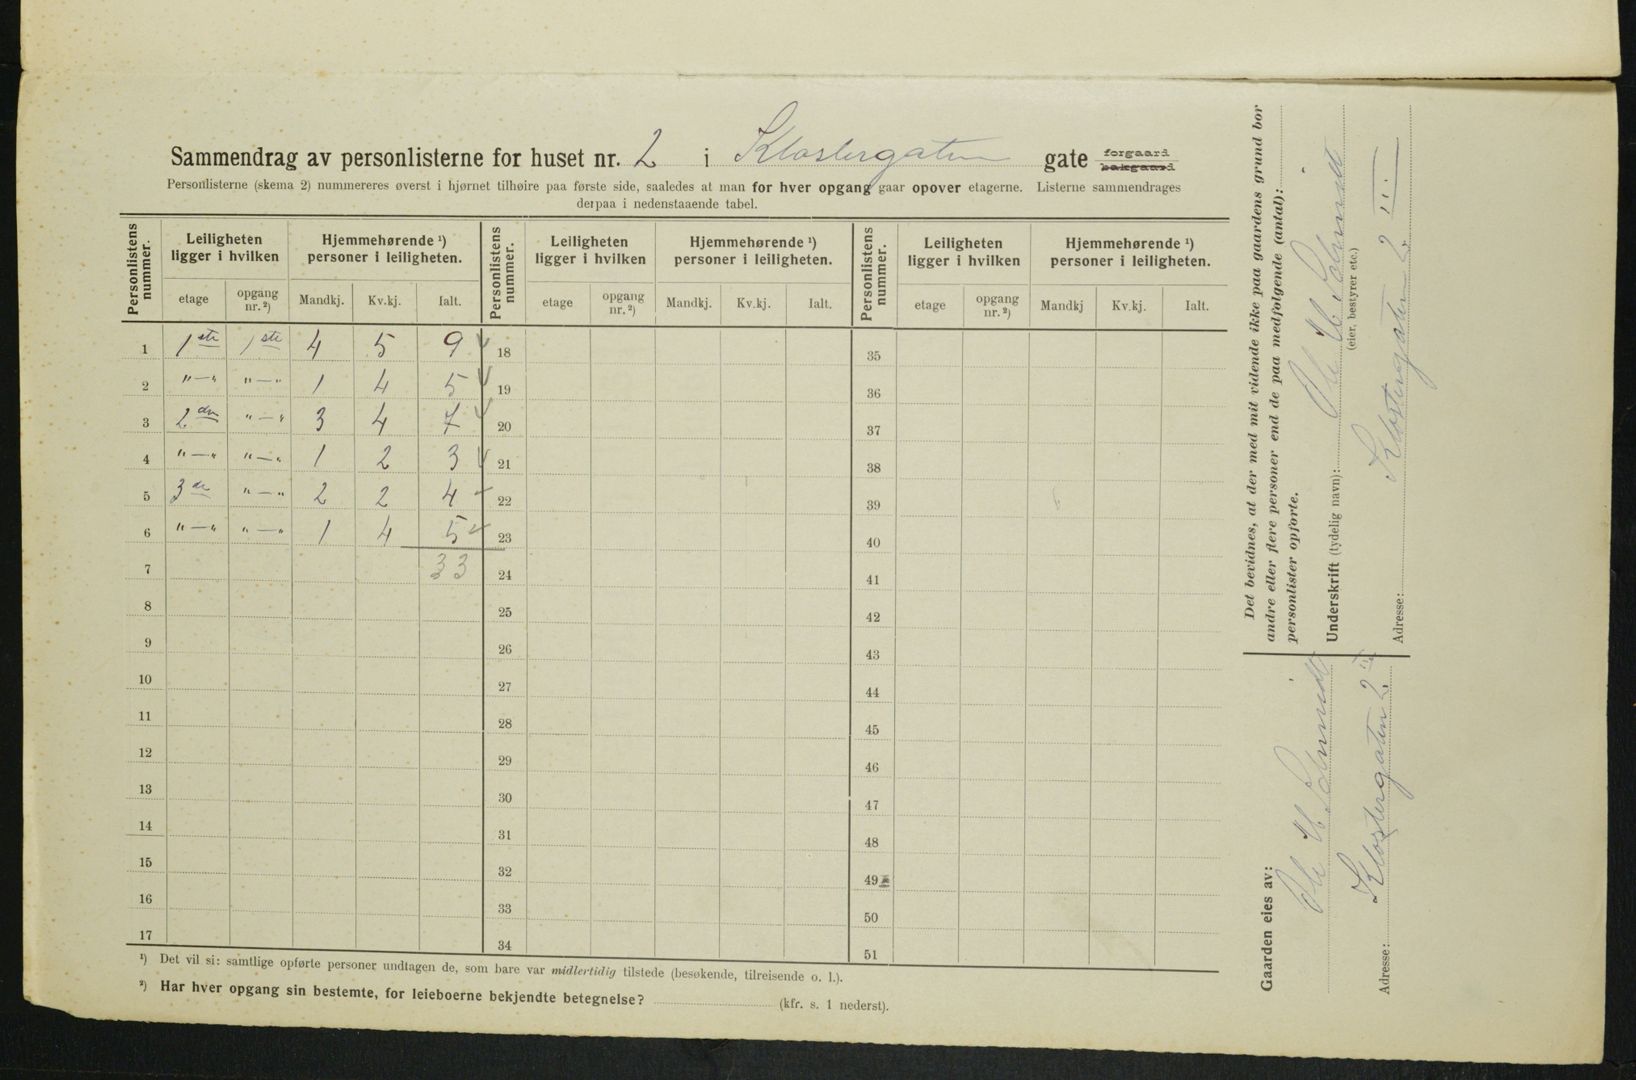 Sammendrag av personlisterne for huset nr. 2 i Klostergaten gate forgaard
bakgaard
Personlisterne (skema 2) nummereres øverst i hjørnet tilhøire paa første side, saaledes at man for hver opgang gaar opover etagerne. Listerne sammendrages
derpaa i nedenstaaende tabel.
Personlistens nummer. Leiligheten ligger i hvilken Hjemmehørende ¹) personer i leiligheten. Personlistens nummer. Leiligheten ligger i hvilken Hjemmehørende ¹) personer i leiligheten. Personlistens nummer. Leiligheten ligger i hvilken Hjemmehørende ¹) personer i leiligheten.
etage opgang nr. ²) Mandkj. Kv.kj. Ialt. etage opgang nr. ²) Mandkj. Kv.kj. Ialt. etage opgang nr. ²) Mandkj Kv.kj. Ialt.
1 1ste 1ste 4 5 9 18 35
2 "—" "—" 1 4 5 19 36
3 2den "—" 3 4 7 20 37
4 "—" "—" 1 2 3 21 38
5 3de "—" 2 2 4 22 39
6 "—" "—" 1 4 5 23 40
7 33 24 41
8 25 42
9 26 43
10 27 44
11 28 45
12 29 46
13 30 47
14 31 48
15 32 49
16 33 50
17 34 51
¹) Det vil si: samtlige opførte personer undtagen de, som bare var midlertidig tilstede (besøkende, tilreisende o. l.).
²) Har hver opgang sin bestemte, for leieboerne bekjendte betegnelse? (kfr. s. 1 nederst).
Det bevidnes, at der med mit vidende ikke paa gaardens grund bor
andre eller flere personer end de paa medfølgende (antal):
personlister opførte.
Underskrift (tydelig navn): Ole H Schmidt
(eier, bestyrer etc.)
Adresse: Klostergaten 2 III
Gaarden eies av:
Ole H Schmidt
Adresse: Klostergaten 2 III